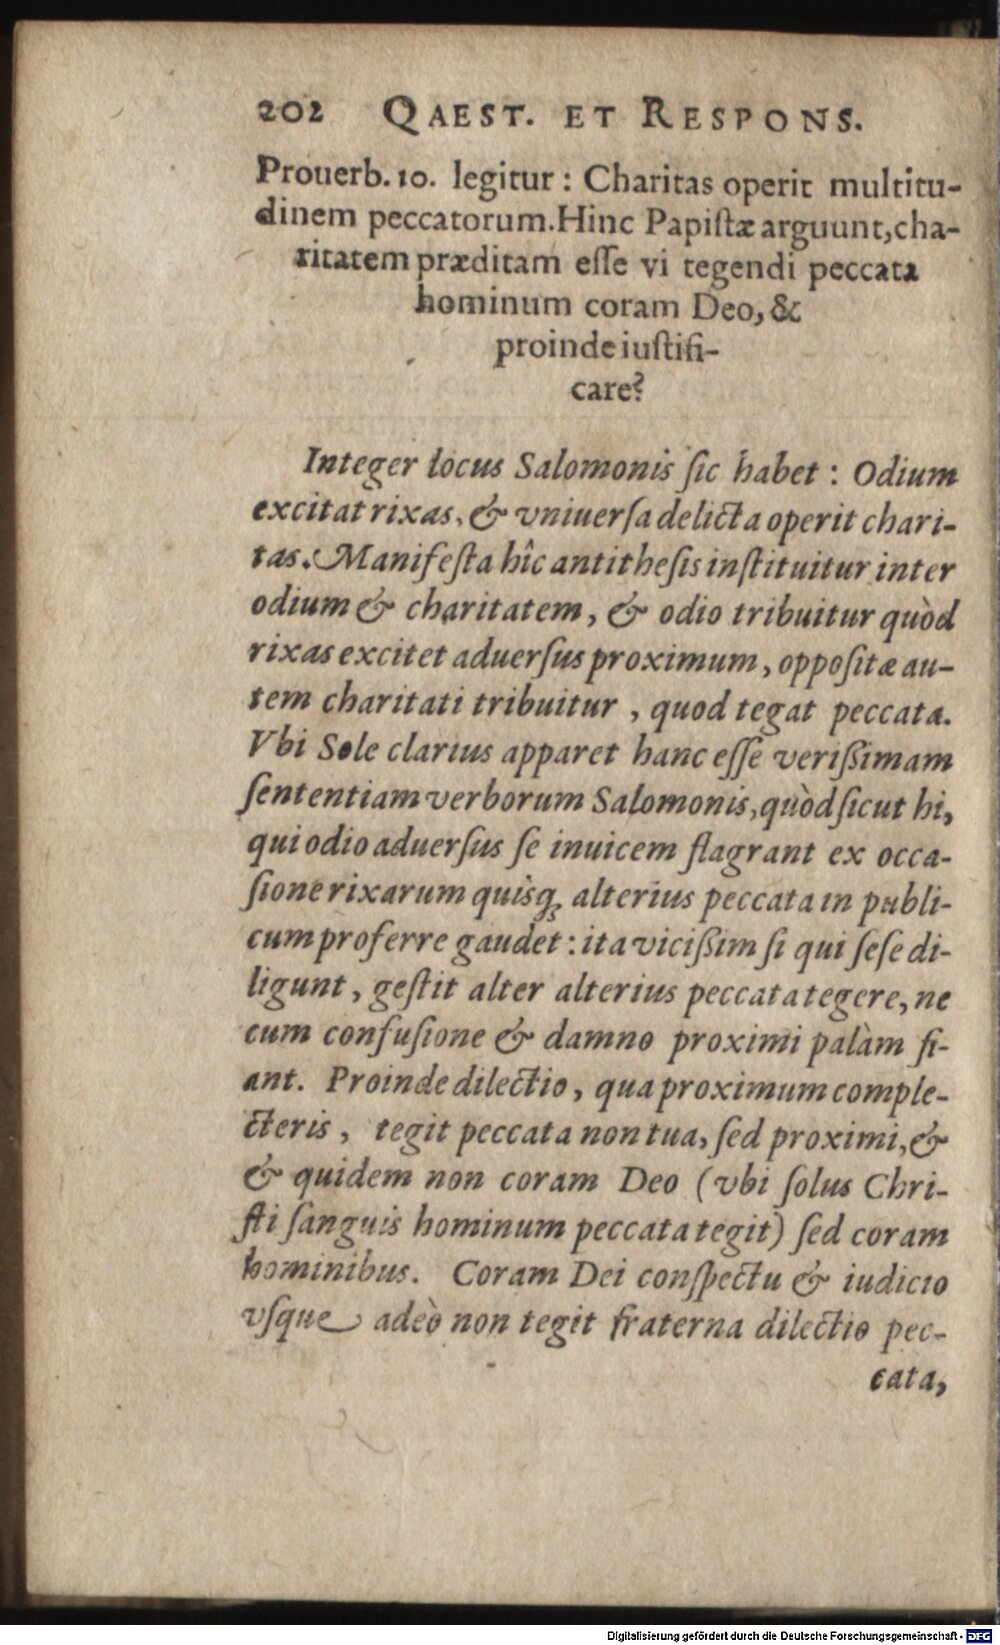 202 QAEST. ET RESPONS.
Prouerb. 10. legitur : Charitas operit multitu-
dinem peccatorum. Hinc Papiſtæ arguunt, cha-
ritatem præditam eſſe vi tegendi peccata
hominum coram Deo, &
proinde iuſtifi-
care?
Integer locus Salomonis ſic habet : Odium
excitat rixas, & vniuerſa delicta operit chari-
tas. Manifeſta hîc antitheſis inſtituitur inter
odium & charitatem, & odio tribuitur quòd
rixas excitet aduerſus proximum, oppoſitæ au-
tem charitati tribuitur , quod tegat peccata.
Vbi Sole clarius apparet hanc eſſe verißimam
ſententiam verborum Salomonis, quòd ſicut hi,
qui odio aduerſus ſe inuicem flagrant ex occa-
ſione rixarum quisq; alterius peccata in publi-
cum proferre gaudet : ita vicißim ſi qui ſeſe di-
ligunt, geſtit alter alterius peccata tegere, ne
cum confuſione & damno proximi palàm fi-
ant. Proinde dilectio, qua proximum comple-
cteris, tegit peccata non tua, ſed proximi, &
& quidem non coram Deo (vbi ſolus Chri-
ſti ſanguis hominum peccata tegit) ſed coram
hominibus. Coram Dei conſpectu & iudicio
vſque adeò non tegit fraterna dilectio pec-
cata,
Digitalisierung gefördert durch die Deutsche Forschungsgemeinschaft - DFG